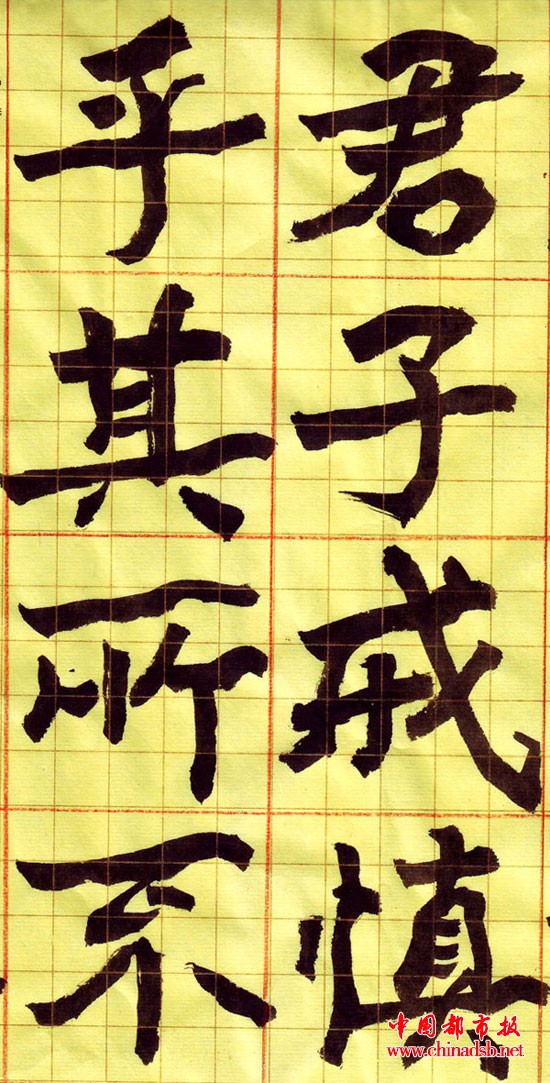 君子戒慎
乎其所不
中国都市报
www.chinadsb.net